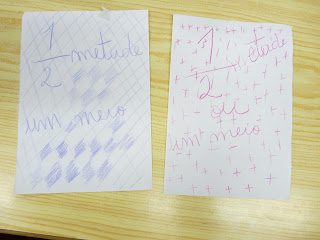 1/2 metade
um meio
1/2 metade
ou
um meio